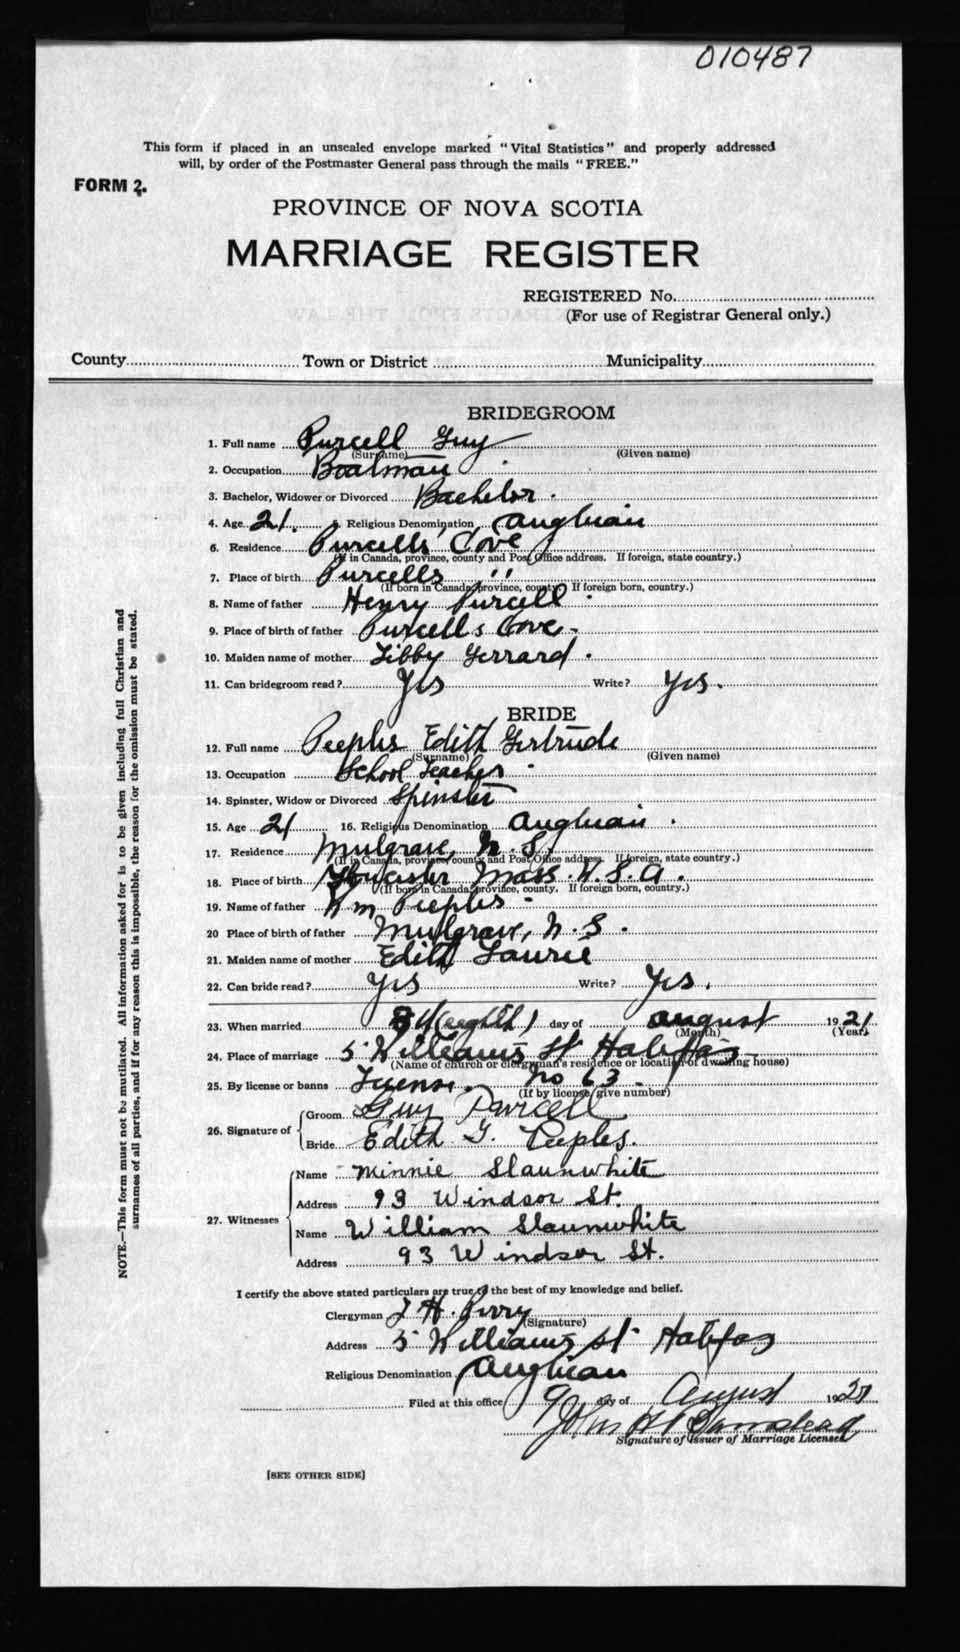 010487
This form if placed in an unsealed envelope marked "Vital Statistics" and properly addressed
will, by order of the Postmaster General pass through the mails "FREE."
FORM 2.
PROVINCE OF NOVA SCOTIA
MARRIAGE REGISTER
REGISTERED No.
(For use of Registrar General only.)
County Town or District Municipality
BRIDEGROOM
1. Full name Purcell Guy
(Surname) (Given name)
2. Occupation Boatman
3. Bachelor, Widower or Divorced Bachelor.
4. Age 21. 5. Religious Denomination Anglican
6. Residence Purcells Cove
(If in Canada, province, county and Post Office address. If foreign, state country.)
7. Place of birth Purcells "
(If born in Canada, province, county. If foreign born, country.)
8. Name of father Henry Purcell.
9. Place of birth of father Purcells Cove.
10. Maiden name of mother Libby Gerrard.
11. Can bridegroom read? Yes Write? Yes.
BRIDE
12. Full name Peeples Edith Gertrude
(Surname) (Given name)
13. Occupation School Teacher
14. Spinster, Widow or Divorced Spinster
15. Age 21 16. Religious Denomination Anglican.
17. Residence Mulgrave, N.S.
(If in Canada, province, county and Post Office address. If foreign, state country.)
18. Place of birth Gloucester Mass. U.S.A.
(If born in Canada, province, county. If foreign born, country.)
19. Name of father Wm Peeples
20 Place of birth of father Mulgrave, N.S.
21. Maiden name of mother Edith Laurie
22. Can bride read? Yes Write? Yes.
23. When married 8th (eighth) day of August 1921
(Month) (Year)
24. Place of marriage 5 Williams St Halifax
(Name of church or clergyman's residence or location of dwelling house)
25. By license or banns License. No 63.
(If by license, give number)
26. Signature of Groom Guy Purcell
Bride Edith G. Peeples.
27. Witnesses Name Minnie Slaunwhite
Address 93 Windsor St.
Name William Slaunwhite
Address 93 Windsor St.
I certify the above stated particulars are true to the best of my knowledge and belief.
Clergyman H. Perry
(Signature)
Address 5 Williams St Halifax
Religious Denomination Anglican
Filed at this office 9 day of August 1921
John H
Signature of Issuer of Marriage License
[SEE OTHER SIDE]
NOTE.—This form must not be mutilated. All information asked for is to be given including full Christian and
surnames of all parties, and if for any reason this is impossible, the reason for the omission must be stated.